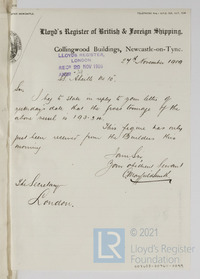 Lloyd's Register of British & Foreign Shipping.
Collingwood Buildings, Newcastle-on-Tyne.
27th November 1919
LLOYD'S REGISTER,
LONDON
REC'D 28 NOV 1919
Sir,
I beg to state in reply to your letter of
yesterday's date that the gross tonnage of the
above vessel is
This figure has only
just been received from the Builders this
morning
I am, Sir,
Your obedient Servant
The Secretary
London.
© 2021
Lloyd's Register
Foundation